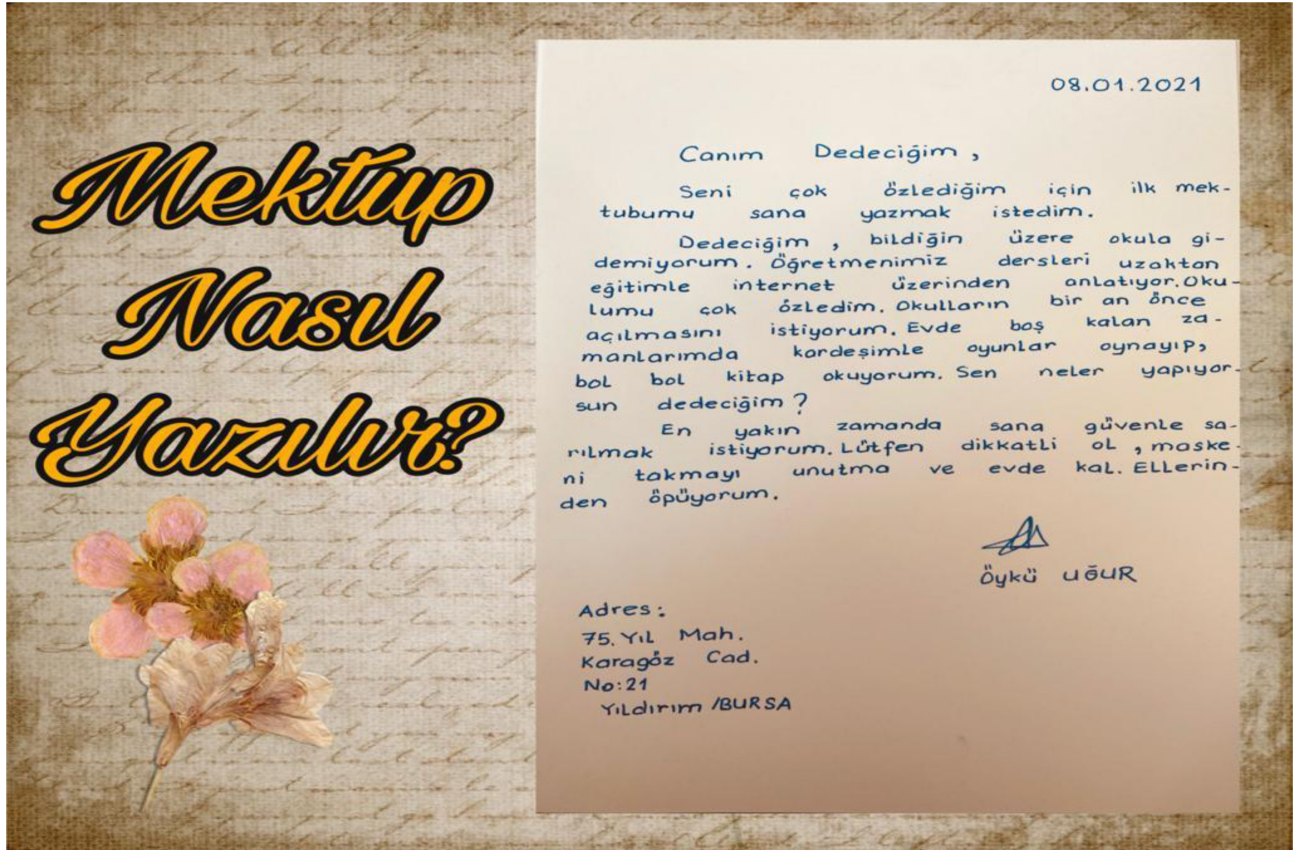 Mektup
Nasıl
Yazılır?
08.01.2021
Canım Dedeciğim,
Seni çok özlediğim için ilk mek-
tubumu sana yazmak istedim.
Dedeciğim, bildiğin üzere okula gi-
demiyorum. Öğretmenimiz dersleri uzaktan
eğitimle internet üzerinden anlatıyor. Oku-
lumu çok özledim. Okulların bir an önce
açılmasını istiyorum. Evde boş kalan za-
manlarımda kardeşimle oyunlar oynayıp,
bol bol kitap okuyorum. Sen neler yapıyor-
sun dedeciğim?
En yakın zamanda sana güvenle sa-
rılmak istiyorum. Lütfen dikkatli ol, maske-
ni takmayı unutma ve evde kal. Ellerin-
den öpüyorum.
Öykü UĞUR
Adres:
75. Yıl Mah.
Karagöz Cad.
No:21
Yıldırım /BURSA